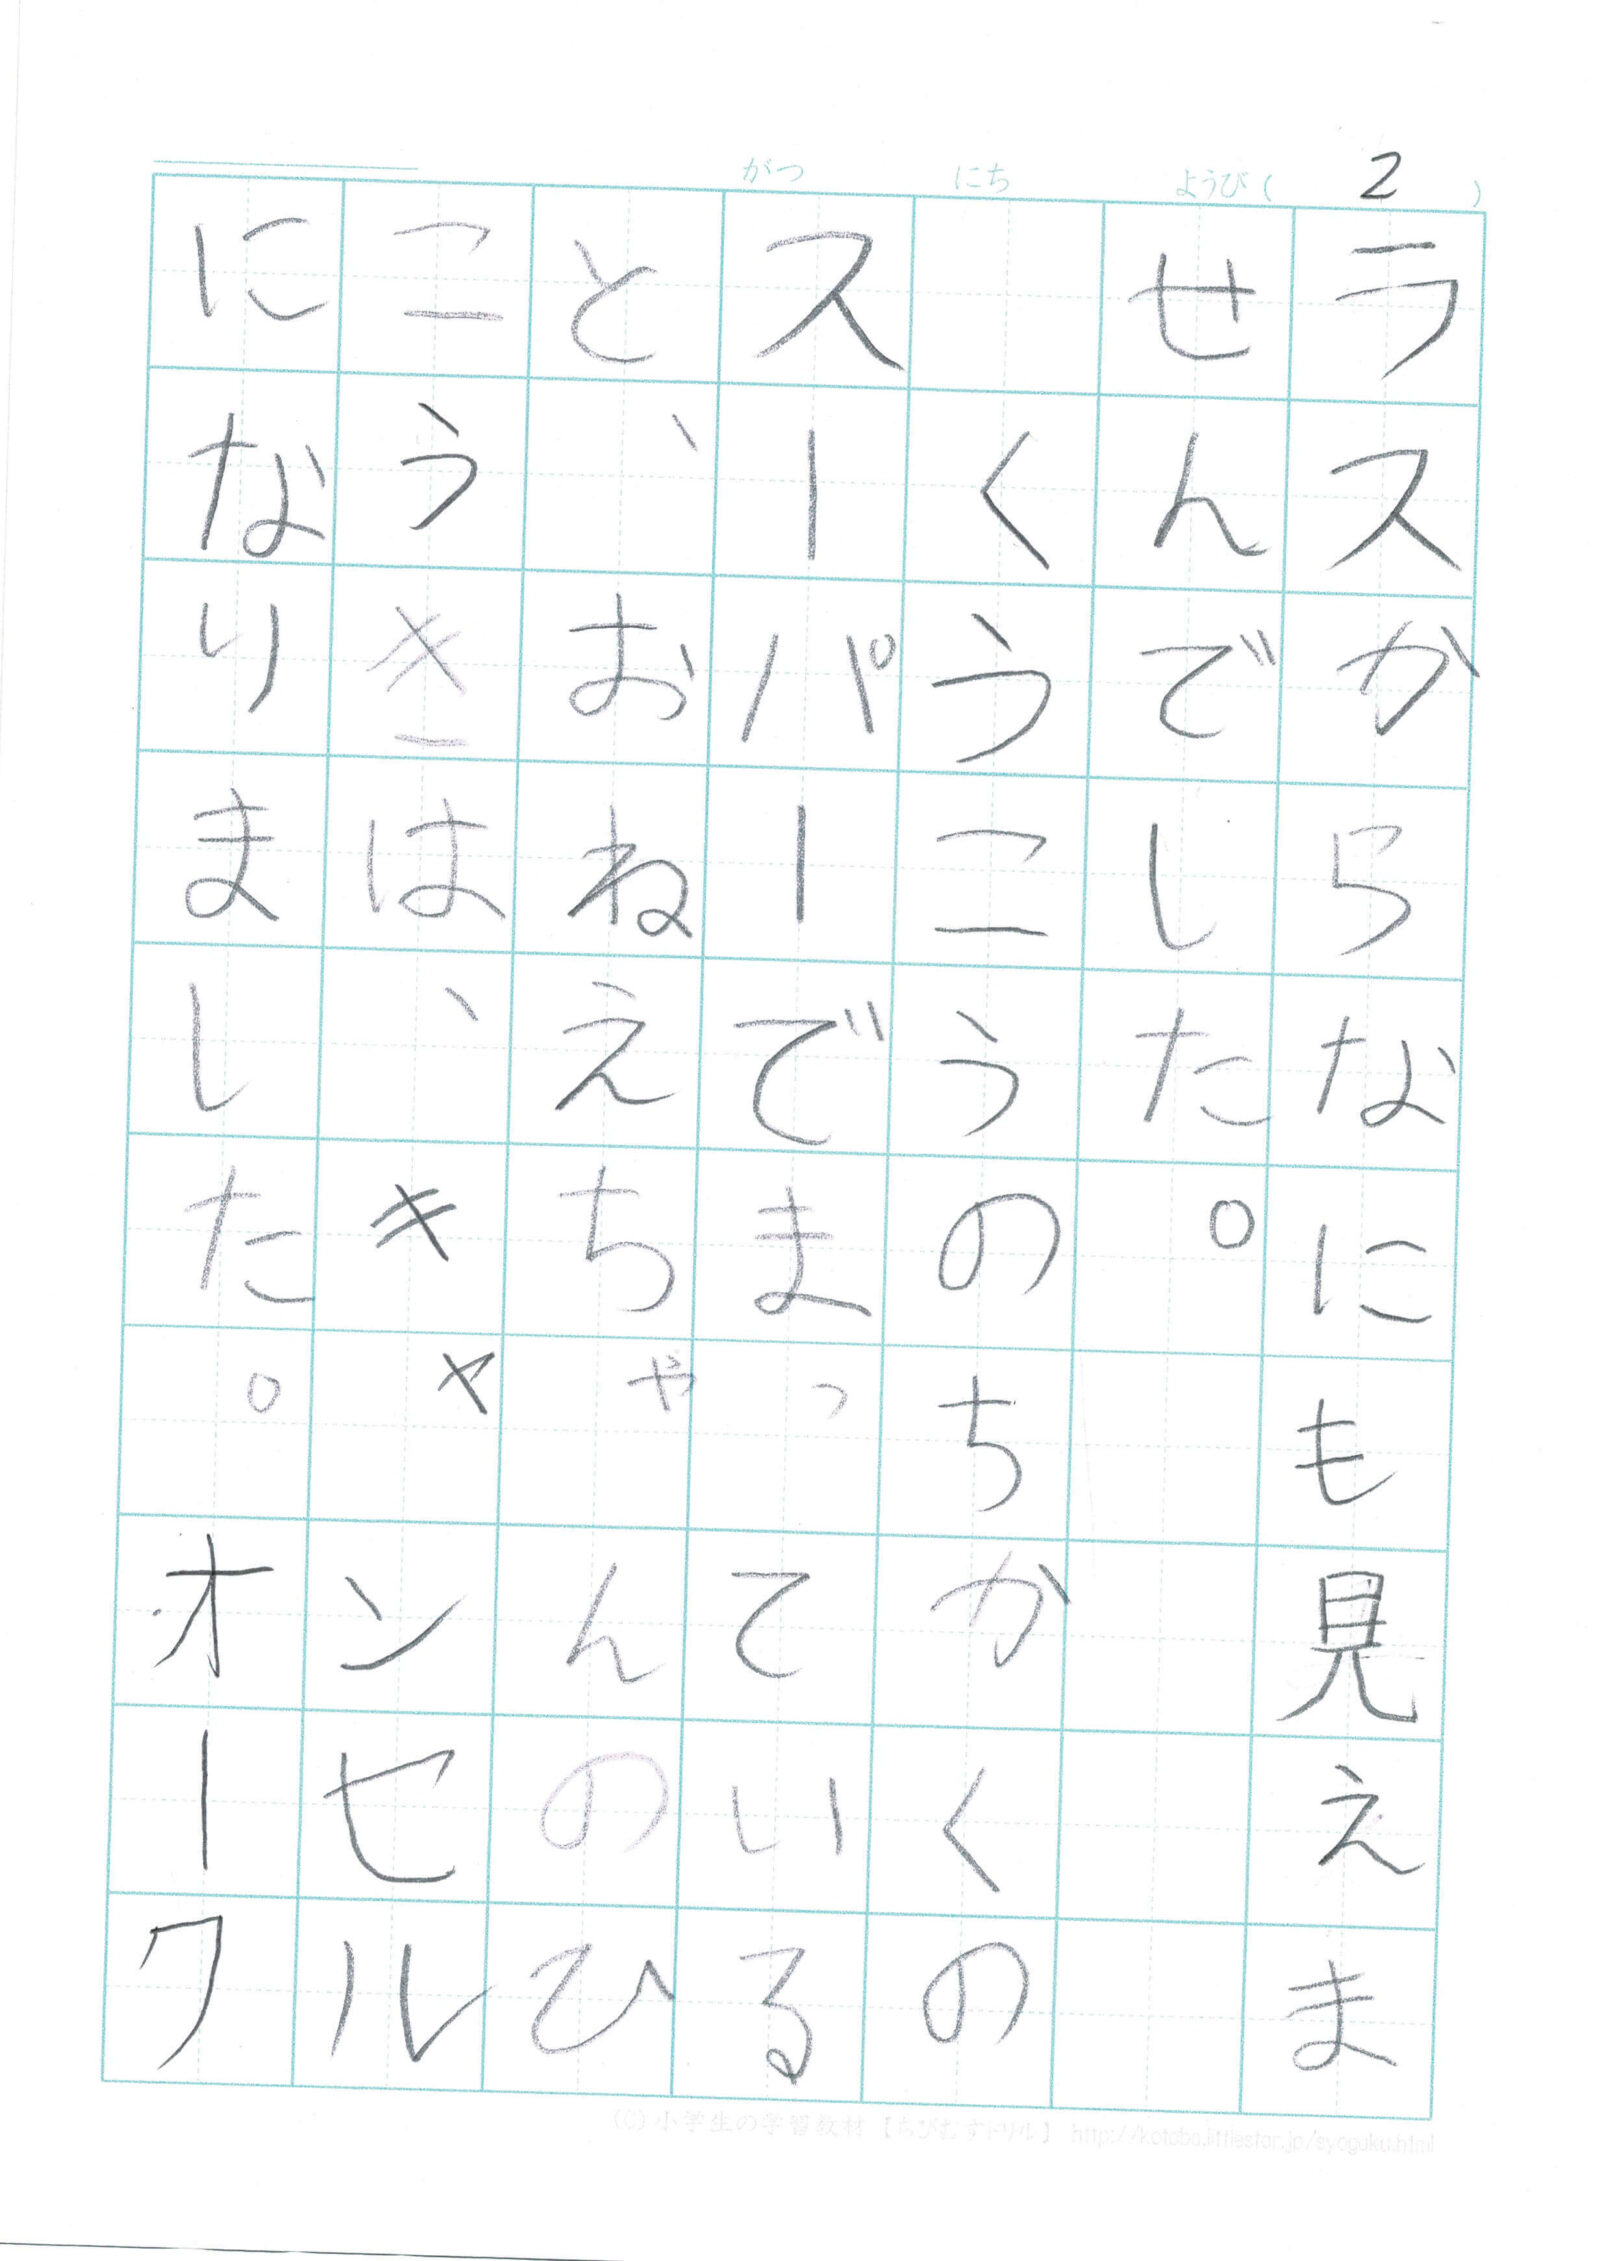 がつ にち ようび( 2 )
ラスからなにも見えま
せんでした。
くうこうのちかくの
スーパーでまっている
と、おねえちゃんのひ
こうきは、キャンセル
になりました。オーク
(C)小学生の学習教材【ちびむすドリル】 http://kotoba.littlestar.jp/syogaku.html